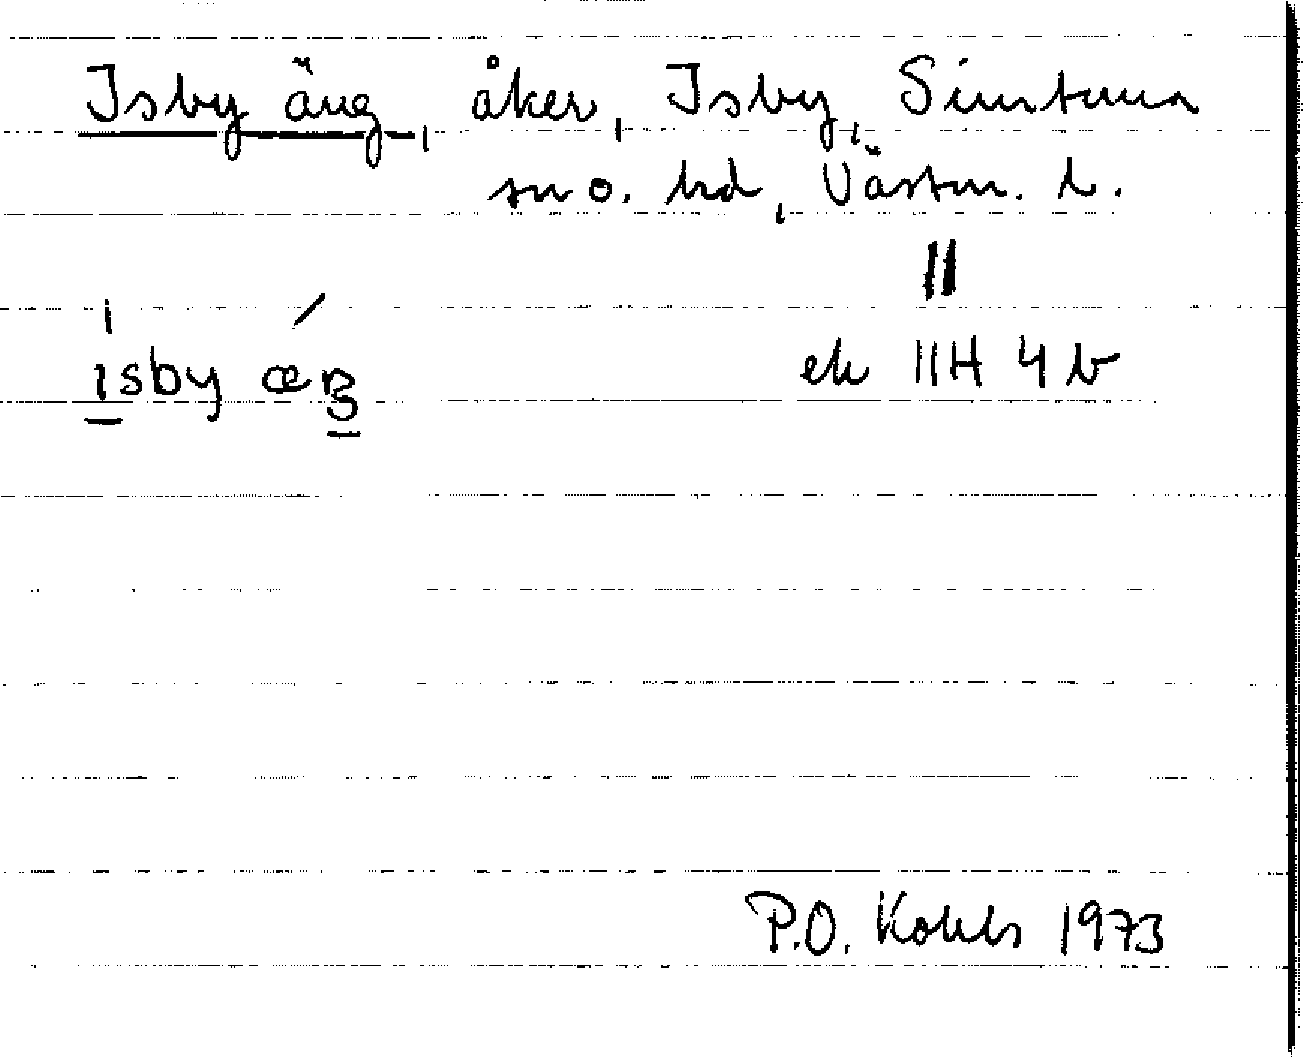 Isby äng, åker, Isby, Simtuna
sn o. hd, Västm. l.
||
isby æŋ
ek 11H 4b
P.O. 1973